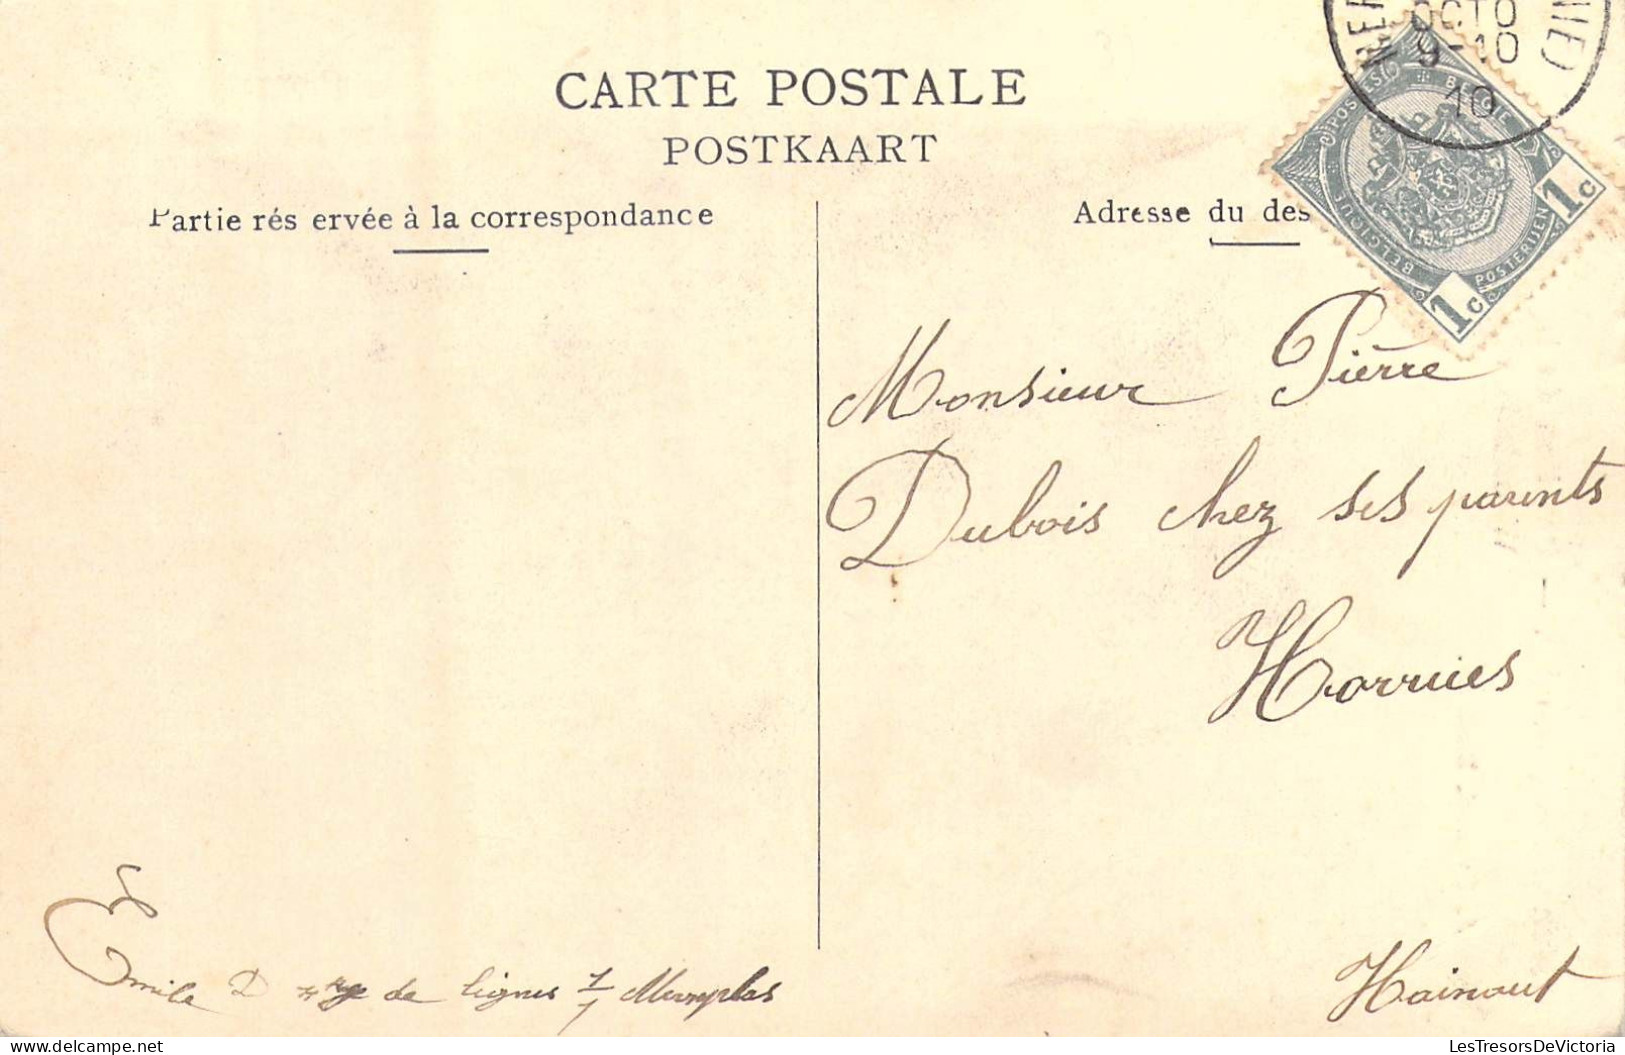 CARTE POSTALE
POSTKAART
Partie rés ervée à la correspondance
Adresse du des
OCTO
9-10
10
NIE)
BELGIQUE POSTES
BELGIË POSTERIJEN
1c
1c
Monsieur Pierre
Dubois chez ses parents
Horrues
Hainaut
Emile D de lignes 1/1 Merxplas
LesTresorsDeVictoria